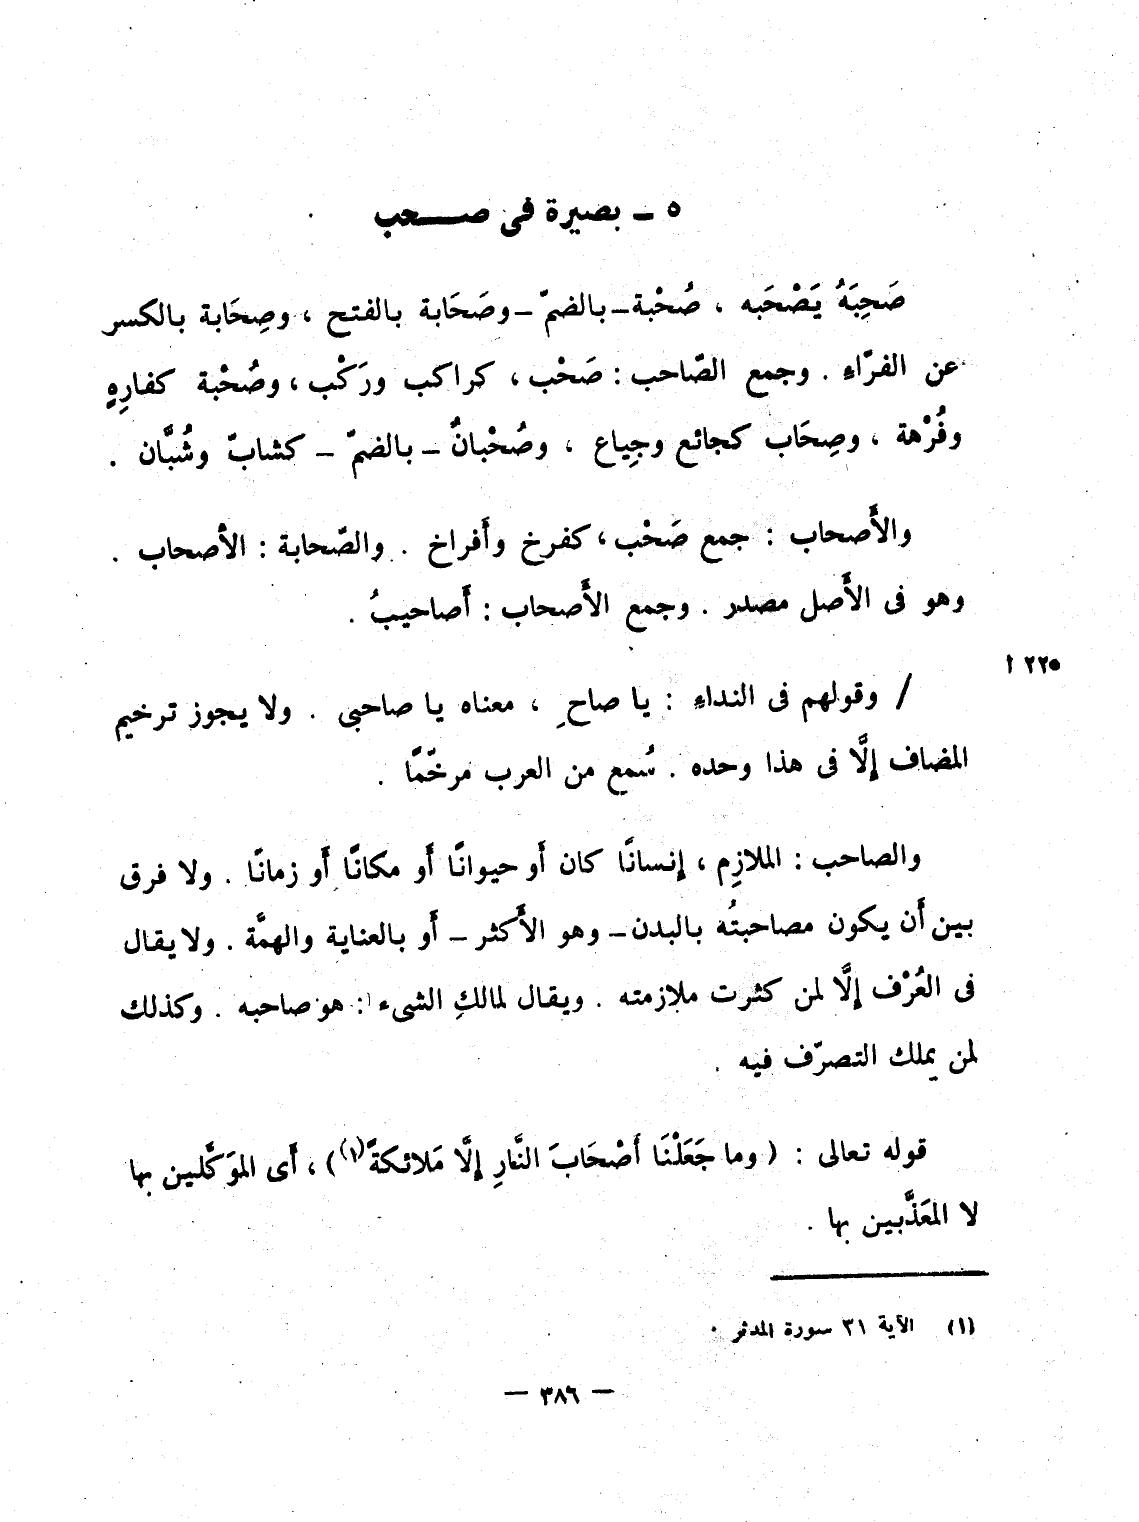 ٥ ـ بصيرة فى صحب
صَحِبَهُ يَصْحَبه ، صُحْبة ـ بالضمّ ـ وصَحَابة بالفتح ، وصِحَابة بالكسر
عن الفرّاءِ . وجمع الصّاحب : صَحْب ، كراكب ورَكْب ، وصُحْبة كفارِهٍ
وفُرْهة ، وصِحَاب كجائع وجِياع ، وصُحْبانٌ ـ بالضمّ ـ كشابّ وشُبَّان .
والأَصحاب : جمع صَحْب ، كفرخ وأَفراخ . والصّحابة : الأصحاب .
وهو فى الأَصل مصدر . وجمع الأَصحاب : أَصاحيبُ .
٢٢٥ ا
/ وقولهم فى النداءِ : يا صاحِ ، معناه يا صاحبى . ولا يجوز ترخيم
المضاف إلَّا فى هذا وحده . سُمع من العرب مرخّمًا .
والصاحب : الملازِم ، إنسانًا كان أَو حيوانًا أَو مكانًا أَو زمانًا . ولا فرق
بين أَن يكون مصاحبتُه بالبدن ـ وهو الأَكثر ـ أَو بالعناية والهمَّة . ولا يقال
فى العُرْف إلَّا لمن كثرت ملازمته . ويقال لمالكِ الشىء : هو صاحبه . وكذلك
لمن يملك التصرّف فيه .
قوله تعالى : ( وما جَعَلْنَا أَصْحَابَ النَّارِ إلَّا مَلائكةً(١) ) ، أَى الموَكَّلين بها
لا المعَذَّبين بها .
(١) الآية ٣١ سورة المدثر .
— ٣٨٦ —